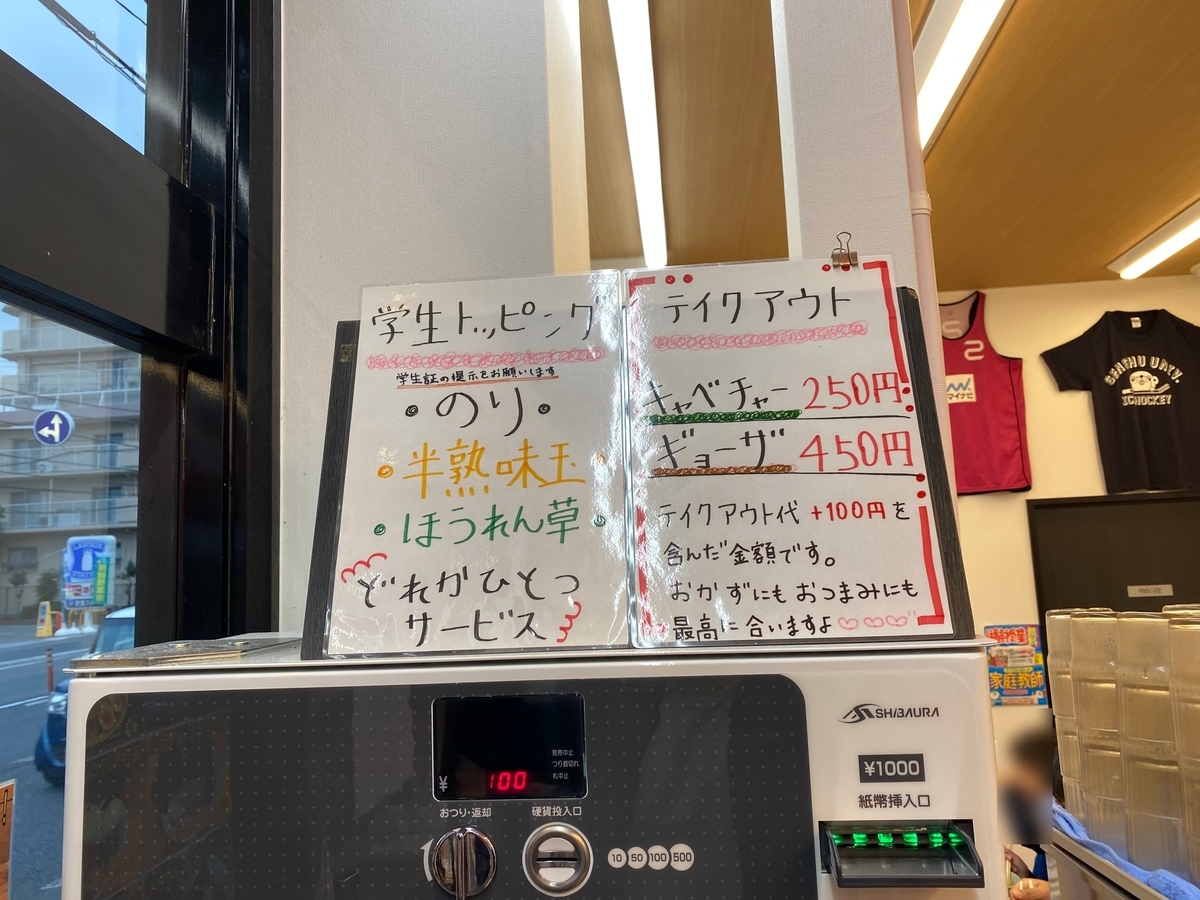 学生トッピング
学生証の提示をお願いします
・のり・
・半熟味玉・
・ほうれん草・
どれかひとつ
サービス
テイクアウト
キャベチャー 250円
ギョーザ 450円
テイクアウト代 +100円を
含んだ金額です。
おかずにもおつまみにも
最高に合いますよ♡♡♡
2
マイナビ
SENSHU UNIV.
ICHOCKEY
PRIVATE
家庭教師
SHIBAURA
¥1000
紙幣挿入口
発売中止
つり銭切れ
札中止
¥ 100
おつり・返却
硬貨投入口
10 50 100 500